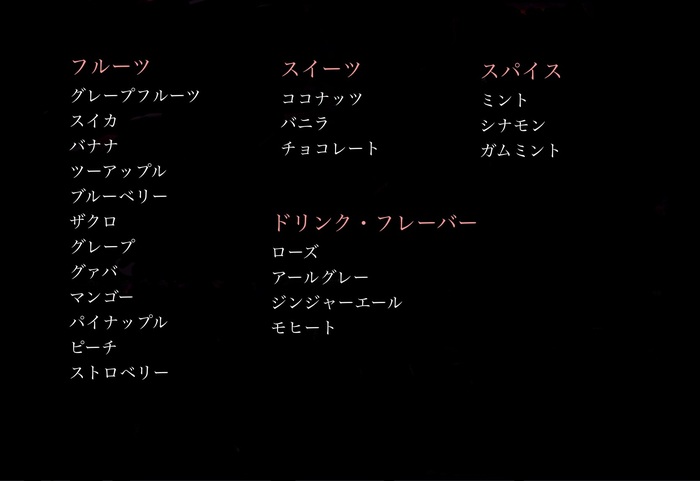 フルーツ
グレープフルーツ
スイカ
バナナ
ツーアップル
ブルーベリー
ザクロ
グレープ
グァバ
マンゴー
パイナップル
ピーチ
ストロベリー
スイーツ
ココナッツ
バニラ
チョコレート
スパイス
ミント
シナモン
ガムミント
ドリンク・フレーバー
ローズ
アールグレー
ジンジャーエール
モヒート